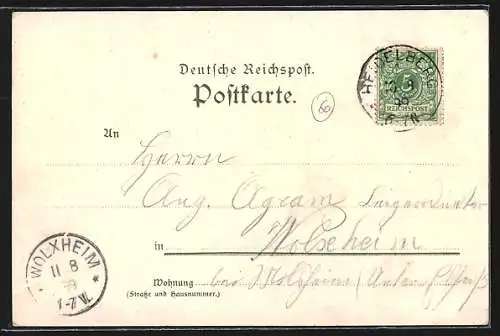 Deutsche Reichspost.
Postkarte.
HEIDELBERG
5
REICHSPOST
6
An
Herrn
Aug. Agram
in Wolxheim
WOLXHEIM
11 8
Wohnung bei Molsheim (Unter Elsaß)
(Straße und Hausnummer.)